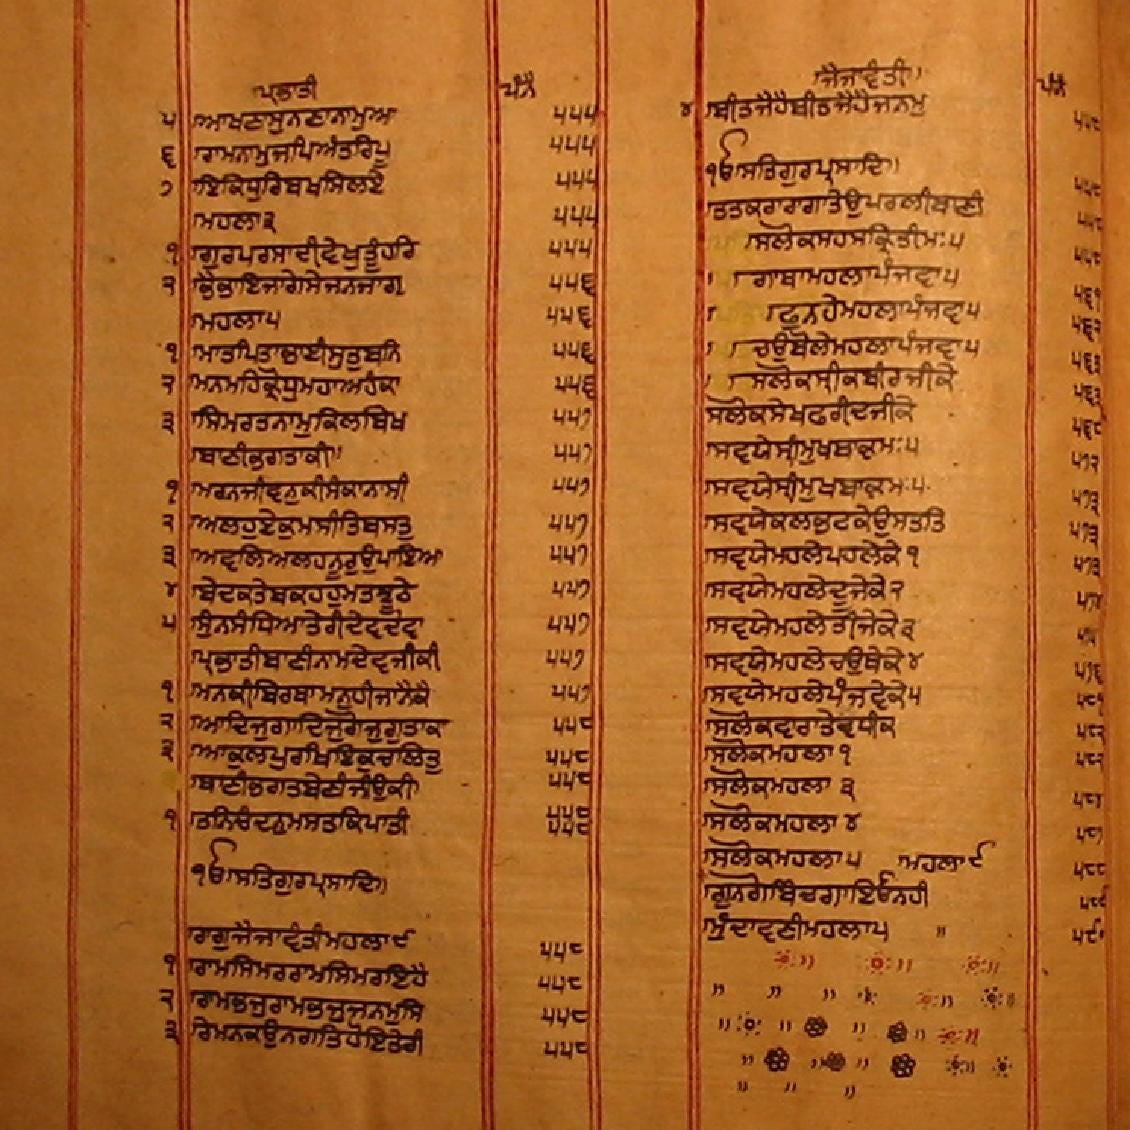 ਪ੍ਰਭਾਤੀ ਪੰਨੈ
੫ ਆਖਣਾਸੁਨਣਾਨਾਮੁਆ ੫੫੫
੬ ਰਾਮਨਾਮੁਜਪਿਅੰਤਰਿਪੂ ੫੫੫
੭ ਇਕਿਧੁਰਿਬਖਸਿਲਏ ੫੫੫
ਮਹਲਾ੩ ੫੫੫
੧ ਗੁਰਪਰਸਾਦੀਵੇਖੁਤੂੰਹਰਿ ੫੫੫
੨ ਭੈਭਾਇਜਾਗੇਸੇਜਨਜਾਗ੍ ੫੫੬
ਮਹਲਾ੫ ੫੫੬
੧ ਮਾਤਪਿਤਾਭਾਈਸੁਤੁਬਨਿ ੫੫੬
੨ ਮਨਮਹਿਕ੍ਰੋਧੁਮਹਾਅਹੰਕਾ ੫੫੬
੩ ਸਿਮਰਤਨਾਮੁਕਿਲਬਿਖ ੫੫੭
ਬਾਣੀਭਗਤਾਕੀ॥ ੫੫੭
੧ ਮਰਨਜੀਵਨੁਕੀਸੰਕਾਨਾਸੀ ੫੫੭
੨ ਅਲਹੁਏਕੁਮਸੀਤਿਬਸਤੁ ੫੫੭
੩ ਅਵਲਿਅਲਹਨੂਰੁਉਪਾਇਆ ੫੫੭
੪ ਬੇਦਕਤੇਬਕਹਹੁਮਤਝੂਠੇ ੫੫੭
੫ ਸੁੰਨਸੰਧਿਆਤੇਰੀਦੇਵਦੇਵਾ ੫੫੭
ਪ੍ਰਭਾਤੀਬਾਣੀਨਾਮਦੇਵਜੀਕੀ ੫੫੭
੧ ਮਨਕੀਬਿਰਥਾਮਨੁਹੀਜਾਨੈਕੈ ੫੫੭
੨ ਆਦਿਜੁਗਾਦਿਜੁਗੋਜੁਗੁਤਾਕਾ ੫੫੮
੩ ਅਕੁਲਪੁਰਖਿਇਕੁਚਲਿਤੁ ੫੫੮
ਬਾਣੀਭਗਤਬੇਣੀਜੀਉਕੀ ੫੫੮
੧ ਤਨਿਚੰਦਨੁਮਸਤਕਿਪਾਤੀ ੫੫੮
ੴਸਤਿਗੁਰਪ੍ਰਸਾਦਿ॥
ਰਾਗੁਜੈਜਾਵੰਤੀਮਹਲਾ੯ ੫੫੮
੧ ਰਾਮਸਿਮਰਰਾਮਸਿਮਰਇਹੈ ੫੫੮
੨ ਰਾਮਭਜੁਰਾਮਭਜੁਜਨਮੁਸਿ ੫੫੮
੩ ਰੇਮਨਕਉਨਗਤਿਹੋਇਤੇਰੀ ੫੫੮
ਜੈਜਾਵੰਤੀ॥ ਪੰਨੈ
੪ ਬੀਤਜੈਹੈਬੀਤਜੈਹੈਜਨਮੁ
ੴਸਤਿਗੁਰਪ੍ਰਸਾਦਿ॥
ਤਤਕਰਾਰਾਗਾਤੇਉਪਰਲੀਬਾਣੀ
ਸਲੋਕਸਹਸਕ੍ਰਿਤੀਮਃ੫
ਗਾਥਾਮਹਲਾਪੰਜਵਾ੫
ਫੁਨਹੇਮਹਲਾਪੰਜਵਾ੫
ਚਉਬੋਲੇਮਹਲਾਪੰਜਵਾ੫
ਸਲੋਕਸ੍ਰੀਕਬੀਰਜੀਕੇ
ਸਲੋਕਸੇਖਫਰੀਦਜੀਕੇ
ਸਵਯੇਸ੍ਰੀਮੁਖਬਾਕ੍ਯਮਃ੫
ਸਵਯੇਸ੍ਰੀਮੁਖਬਾਕ੍ਯਮਃ੫
ਸਵਯੇਕਲਭਟਕੇਉਸਤਤਿ
ਸਵਯੇਮਹਲੇਪਹਲੇਕੇ ੧
ਸਵਯੇਮਹਲੇਦੂਜੇਕੇ ੨
ਸਵਯੇਮਹਲੇਤੀਜੇਕੇ ੩
ਸਵਯੇਮਹਲੇਚਉਥੇਕੇ ੪
ਸਵਯੇਮਹਲੇਪੰਜਵੇਕੇ੫
ਸਲੋਕਵਾਰਾਤੇਵਧੀਕ
ਸਲੋਕਮਹਲਾ ੧
ਸਲੋਕਮਹਲਾ ੩
ਸਲੋਕਮਹਲਾ ੪
ਸਲੋਕਮਹਲਾ ੫ ਮਹਲਾ੯
ਗੁਨਗੋਬਿੰਦਗਾਇਓਨਹੀ
ਮੁੰਦਾਵਣੀਮਹਲਾ੫ ॥